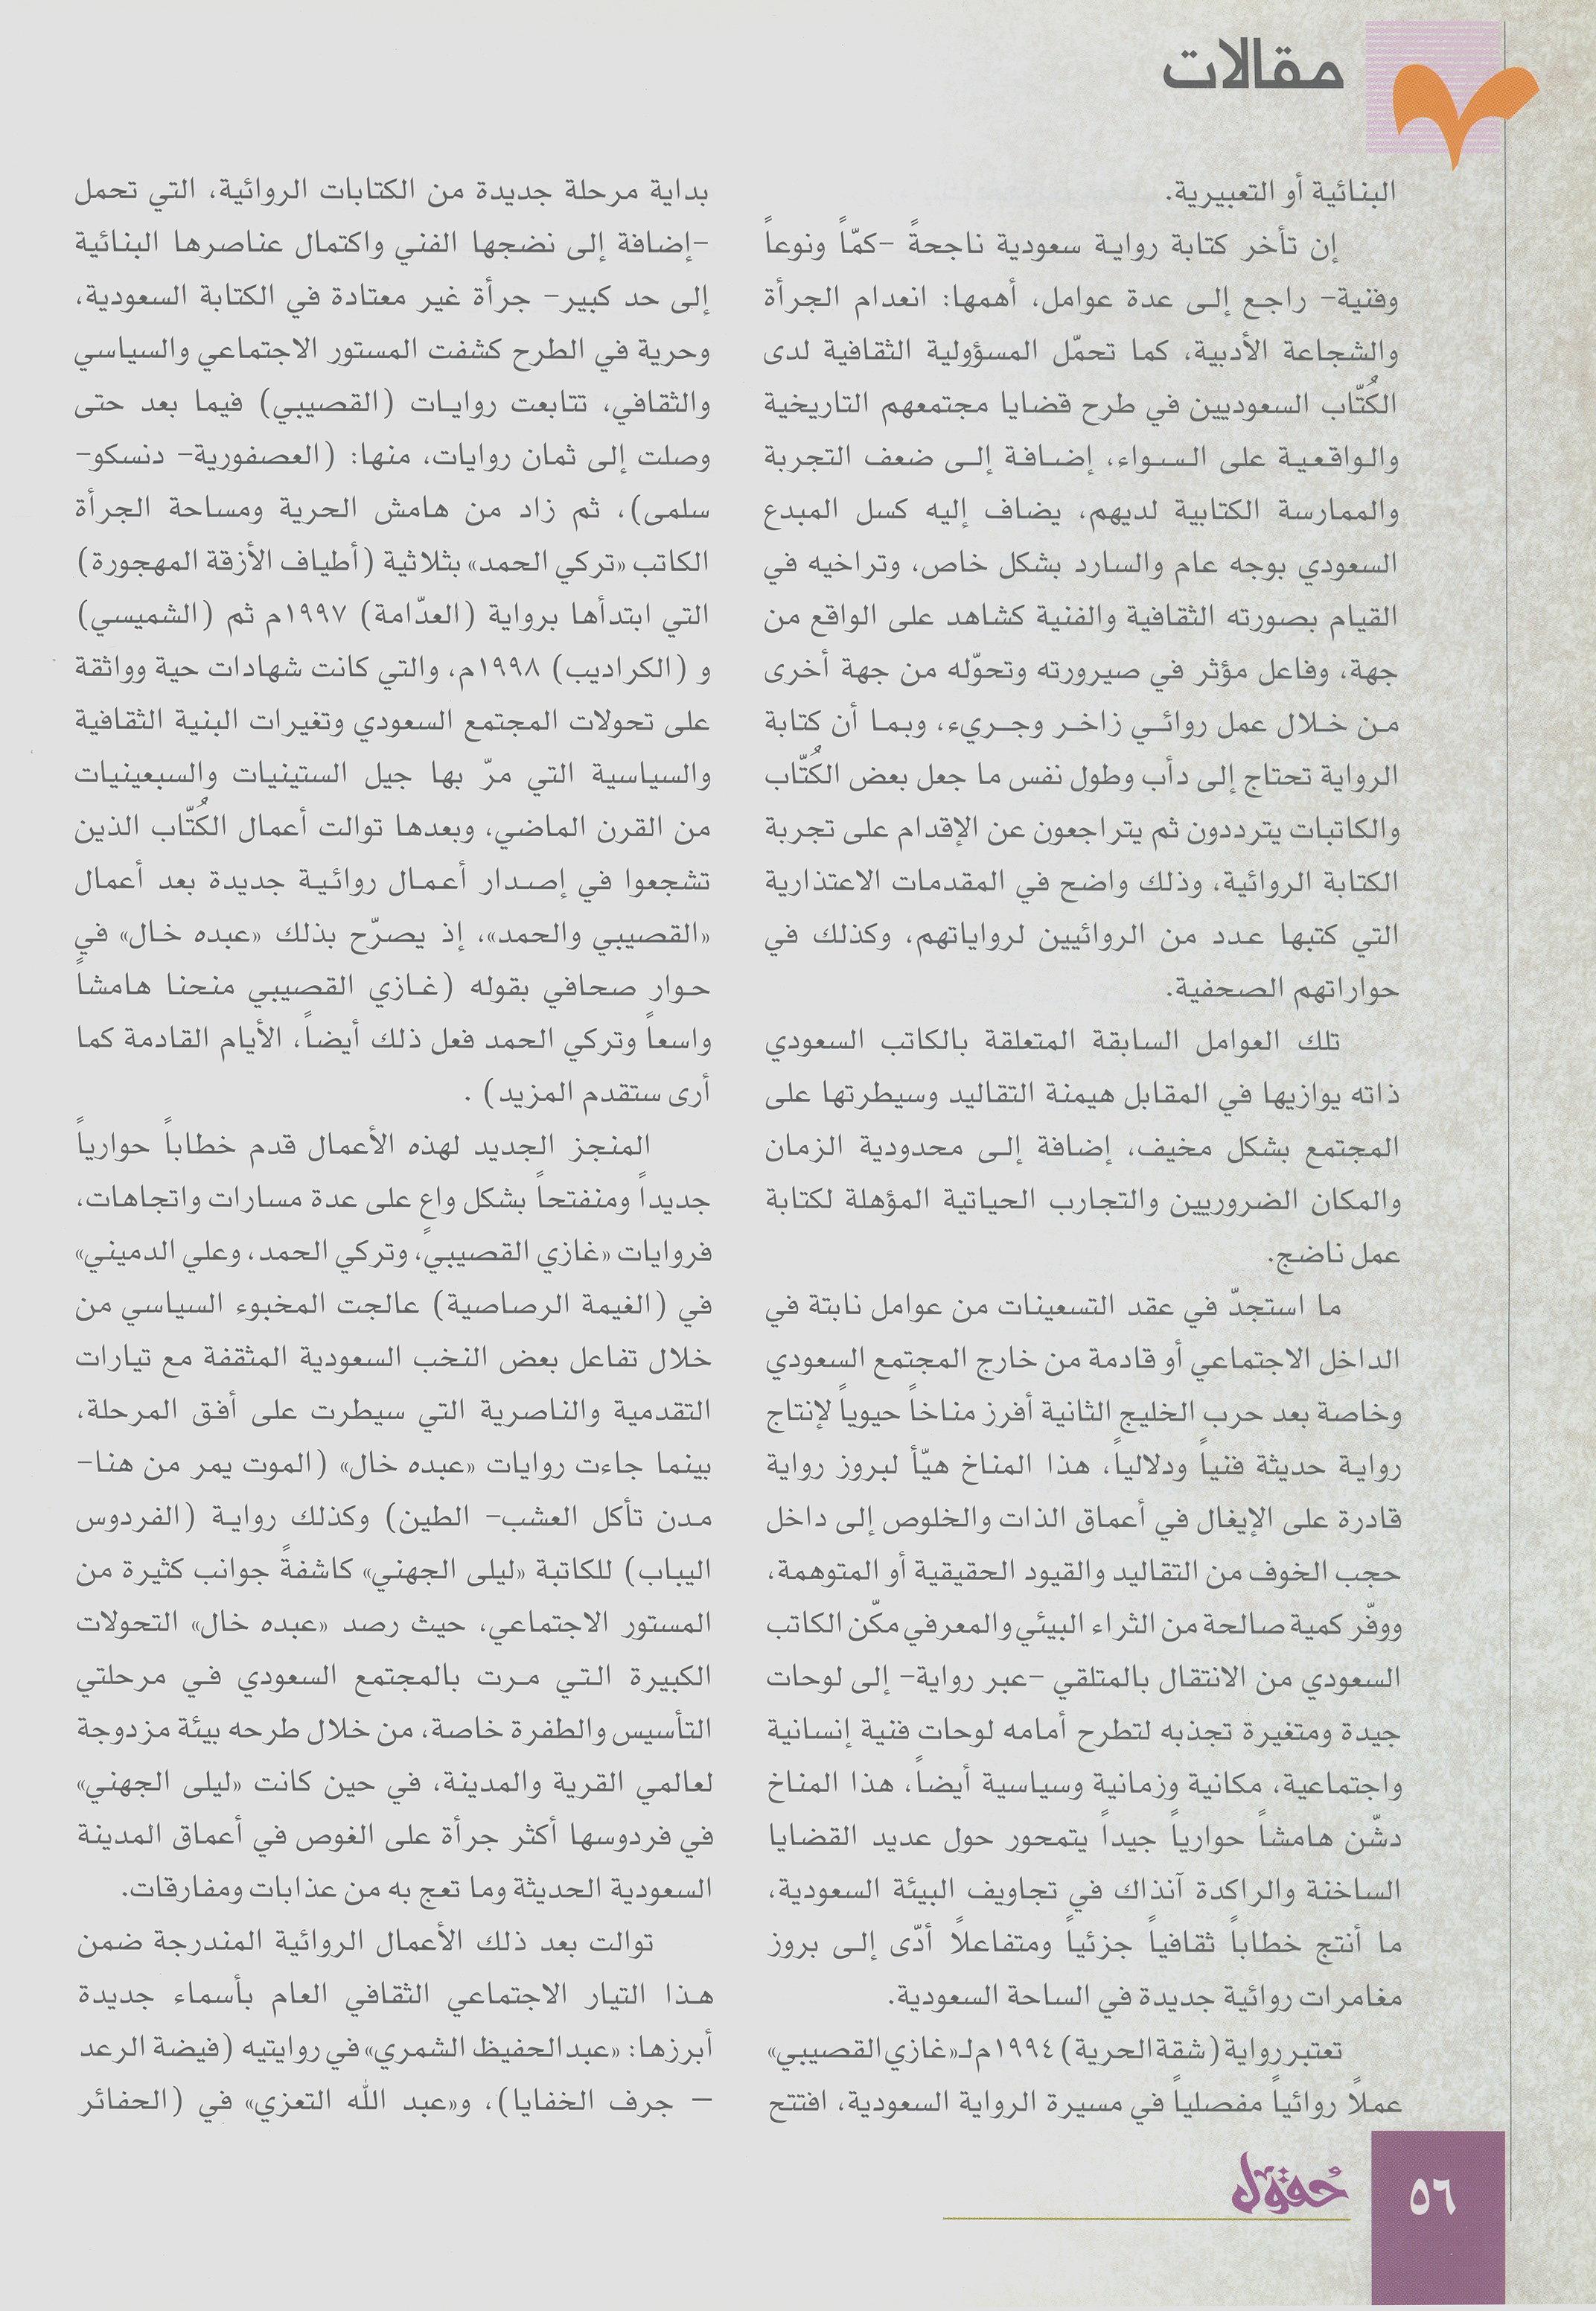 مقالات
البنائية أو التعبيرية.
إن تأخر كتابة رواية سعودية ناجحةً -كمّاً ونوعاً
وفنية- راجع إلى عدة عوامل، أهمها: انعدام الجرأة
والشجاعة الأدبية، كما تحمّل المسؤولية الثقافية لدى
الكُتّاب السعوديين في طرح قضايا مجتمعهم التاريخية
والواقعية على السواء، إضافة إلى ضعف التجربة
والممارسة الكتابية لديهم، يضاف إليه كسل المبدع
السعودي بوجه عام والسارد بشكل خاص، وتراخيه في
القيام بصورته الثقافية والفنية كشاهد على الواقع من
جهة، وفاعل مؤثر في صيرورته وتحوّله من جهة أخرى
من خلال عمل روائي زاخر وجريء، وبما أن كتابة
الرواية تحتاج إلى دأب وطول نفس ما جعل بعض الكُتّاب
والكاتبات يترددون ثم يتراجعون عن الإقدام على تجربة
الكتابة الروائية، وذلك واضح في المقدمات الاعتذارية
التي كتبها عدد من الروائيين لرواياتهم، وكذلك في
حواراتهم الصحفية.
تلك العوامل السابقة المتعلقة بالكاتب السعودي
ذاته يوازيها في المقابل هيمنة التقاليد وسيطرتها على
المجتمع بشكل مخيف، إضافة إلى محدودية الزمان
والمكان الضروريين والتجارب الحياتية المؤهلة لكتابة
عمل ناضج.
ما استجدّ في عقد التسعينات من عوامل نابتة في
الداخل الاجتماعي أو قادمة من خارج المجتمع السعودي
وخاصة بعد حرب الخليج الثانية أفرز مناخاً حيوياً لإنتاج
رواية حديثة فنياً ودلالياً، هذا المناخ هيّأ لبروز رواية
قادرة على الإيغال في أعماق الذات والخلوص إلى داخل
حجب الخوف من التقاليد والقيود الحقيقية أو المتوهمة،
ووفّر كمية صالحة من الثراء البيئي والمعرفي مكّن الكاتب
السعودي من الانتقال بالمتلقي -عبر رواية- إلى لوحات
جيدة ومتغيرة تجذبه لتطرح أمامه لوحات فنية إنسانية
واجتماعية، مكانية وزمانية وسياسية أيضاً، هذا المناخ
دشّن هامشاً حوارياً جيداً يتمحور حول عديد القضايا
الساخنة والراكدة آنذاك في تجاويف البيئة السعودية،
ما أنتج خطاباً ثقافياً جزئياً ومتفاعلاً أدّى إلى بروز
مغامرات روائية جديدة في الساحة السعودية.
تعتبر رواية (شقة الحرية) ١٩٩٤م لـ«غازي القصيبي»
عملاً روائياً مفصلياً في مسيرة الرواية السعودية، افتتح
بداية مرحلة جديدة من الكتابات الروائية، التي تحمل
-إضافة إلى نضجها الفني واكتمال عناصرها البنائية
إلى حد كبير- جرأة غير معتادة في الكتابة السعودية،
وحرية في الطرح كشفت المستور الاجتماعي والسياسي
والثقافي، تتابعت روايات (القصيبي) فيما بعد حتى
وصلت إلى ثمان روايات، منها: (العصفورية- دنسكو-
سلمى)، ثم زاد من هامش الحرية ومساحة الجرأة
الكاتب «تركي الحمد» بثلاثية (أطياف الأزقة المهجورة)
التي ابتدأها برواية (العدّامة) ١٩٩٧م ثم (الشميسي)
و (الكراديب) ١٩٩٨م، والتي كانت شهادات حية وواثقة
على تحولات المجتمع السعودي وتغيرات البنية الثقافية
والسياسية التي مرّ بها جيل الستينيات والسبعينيات
من القرن الماضي، وبعدها توالت أعمال الكُتّاب الذين
تشجعوا في إصدار أعمال روائية جديدة بعد أعمال
«القصيبي والحمد»، إذ يصرّح بذلك «عبده خال» في
حوار صحافي بقوله (غازي القصيبي منحنا هامشاً
واسعاً وتركي الحمد فعل ذلك أيضاً، الأيام القادمة كما
أرى ستقدم المزيد) .
المنجز الجديد لهذه الأعمال قدم خطاباً حوارياً
جديداً ومنفتحاً بشكل واعٍ على عدة مسارات واتجاهات،
فروايات «غازي القصيبي، وتركي الحمد، وعلي الدميني»
في (الغيمة الرصاصية) عالجت المخبوء السياسي من
خلال تفاعل بعض النخب السعودية المثقفة مع تيارات
التقدمية والناصرية التي سيطرت على أفق المرحلة،
بينما جاءت روايات «عبده خال» (الموت يمر من هنا-
مدن تأكل العشب- الطين) وكذلك رواية (الفردوس
اليباب) للكاتبة «ليلى الجهني» كاشفةً جوانب كثيرة من
المستور الاجتماعي، حيث رصد «عبده خال» التحولات
الكبيرة التي مرت بالمجتمع السعودي في مرحلتي
التأسيس والطفرة خاصة، من خلال طرحه بيئة مزدوجة
لعالمي القرية والمدينة، في حين كانت «ليلى الجهني»
في فردوسها أكثر جرأة على الغوص في أعماق المدينة
السعودية الحديثة وما تعج به من عذابات ومفارقات.
توالت بعد ذلك الأعمال الروائية المندرجة ضمن
هذا التيار الاجتماعي الثقافي العام بأسماء جديدة
أبرزها: «عبدالحفيظ الشمري» في روايتيه (فيضة الرعد
- جرف الخفايا)، و«عبد الله التعزي» في (الحفائر
حُقول
٥٦